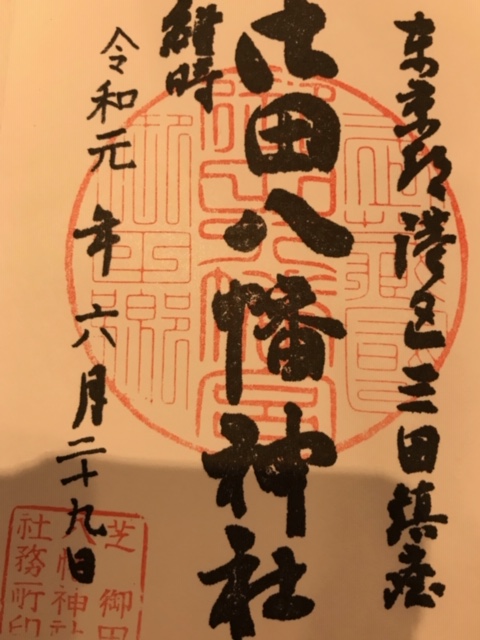 東京都港区三田鎮座
御田八幡神社
維時
令和元年六月二十九日
芝御田
八幡神社
社務所印